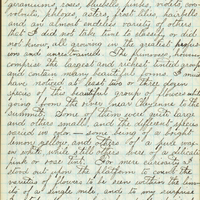 geraniums, roses, bluebells, pinks, violets, con-
volvulus, phloxes, asters, front like harebells
and an almost endless variety of others
that I did not take time to classify or did
not know, all growing in the greatest profusion
and unrestrained. The
comprise the largest and richest tinted group
and contain many beautiful forms. I must
have noticed at least two or three dozen
species of this beautiful group of
going from the river near Cheyenne to the
summit. Some of them were quite large
and others small and the different species
varied in color — some being of a bright
lemon yellow and others of a pure wax-
en white while still others were of a delicate
pink or rose tint. For mere curiosity I
stood out upon the platform to count the
varieties of flowers to be seen within the lim-
its of a single mile, and to my surprise